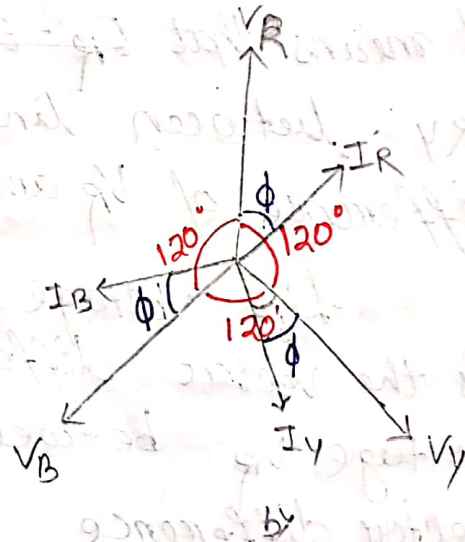 V_R
I_R
ϕ
120°
120°
I_B
ϕ
120°
ϕ
I_Y
V_B
V_Y
by